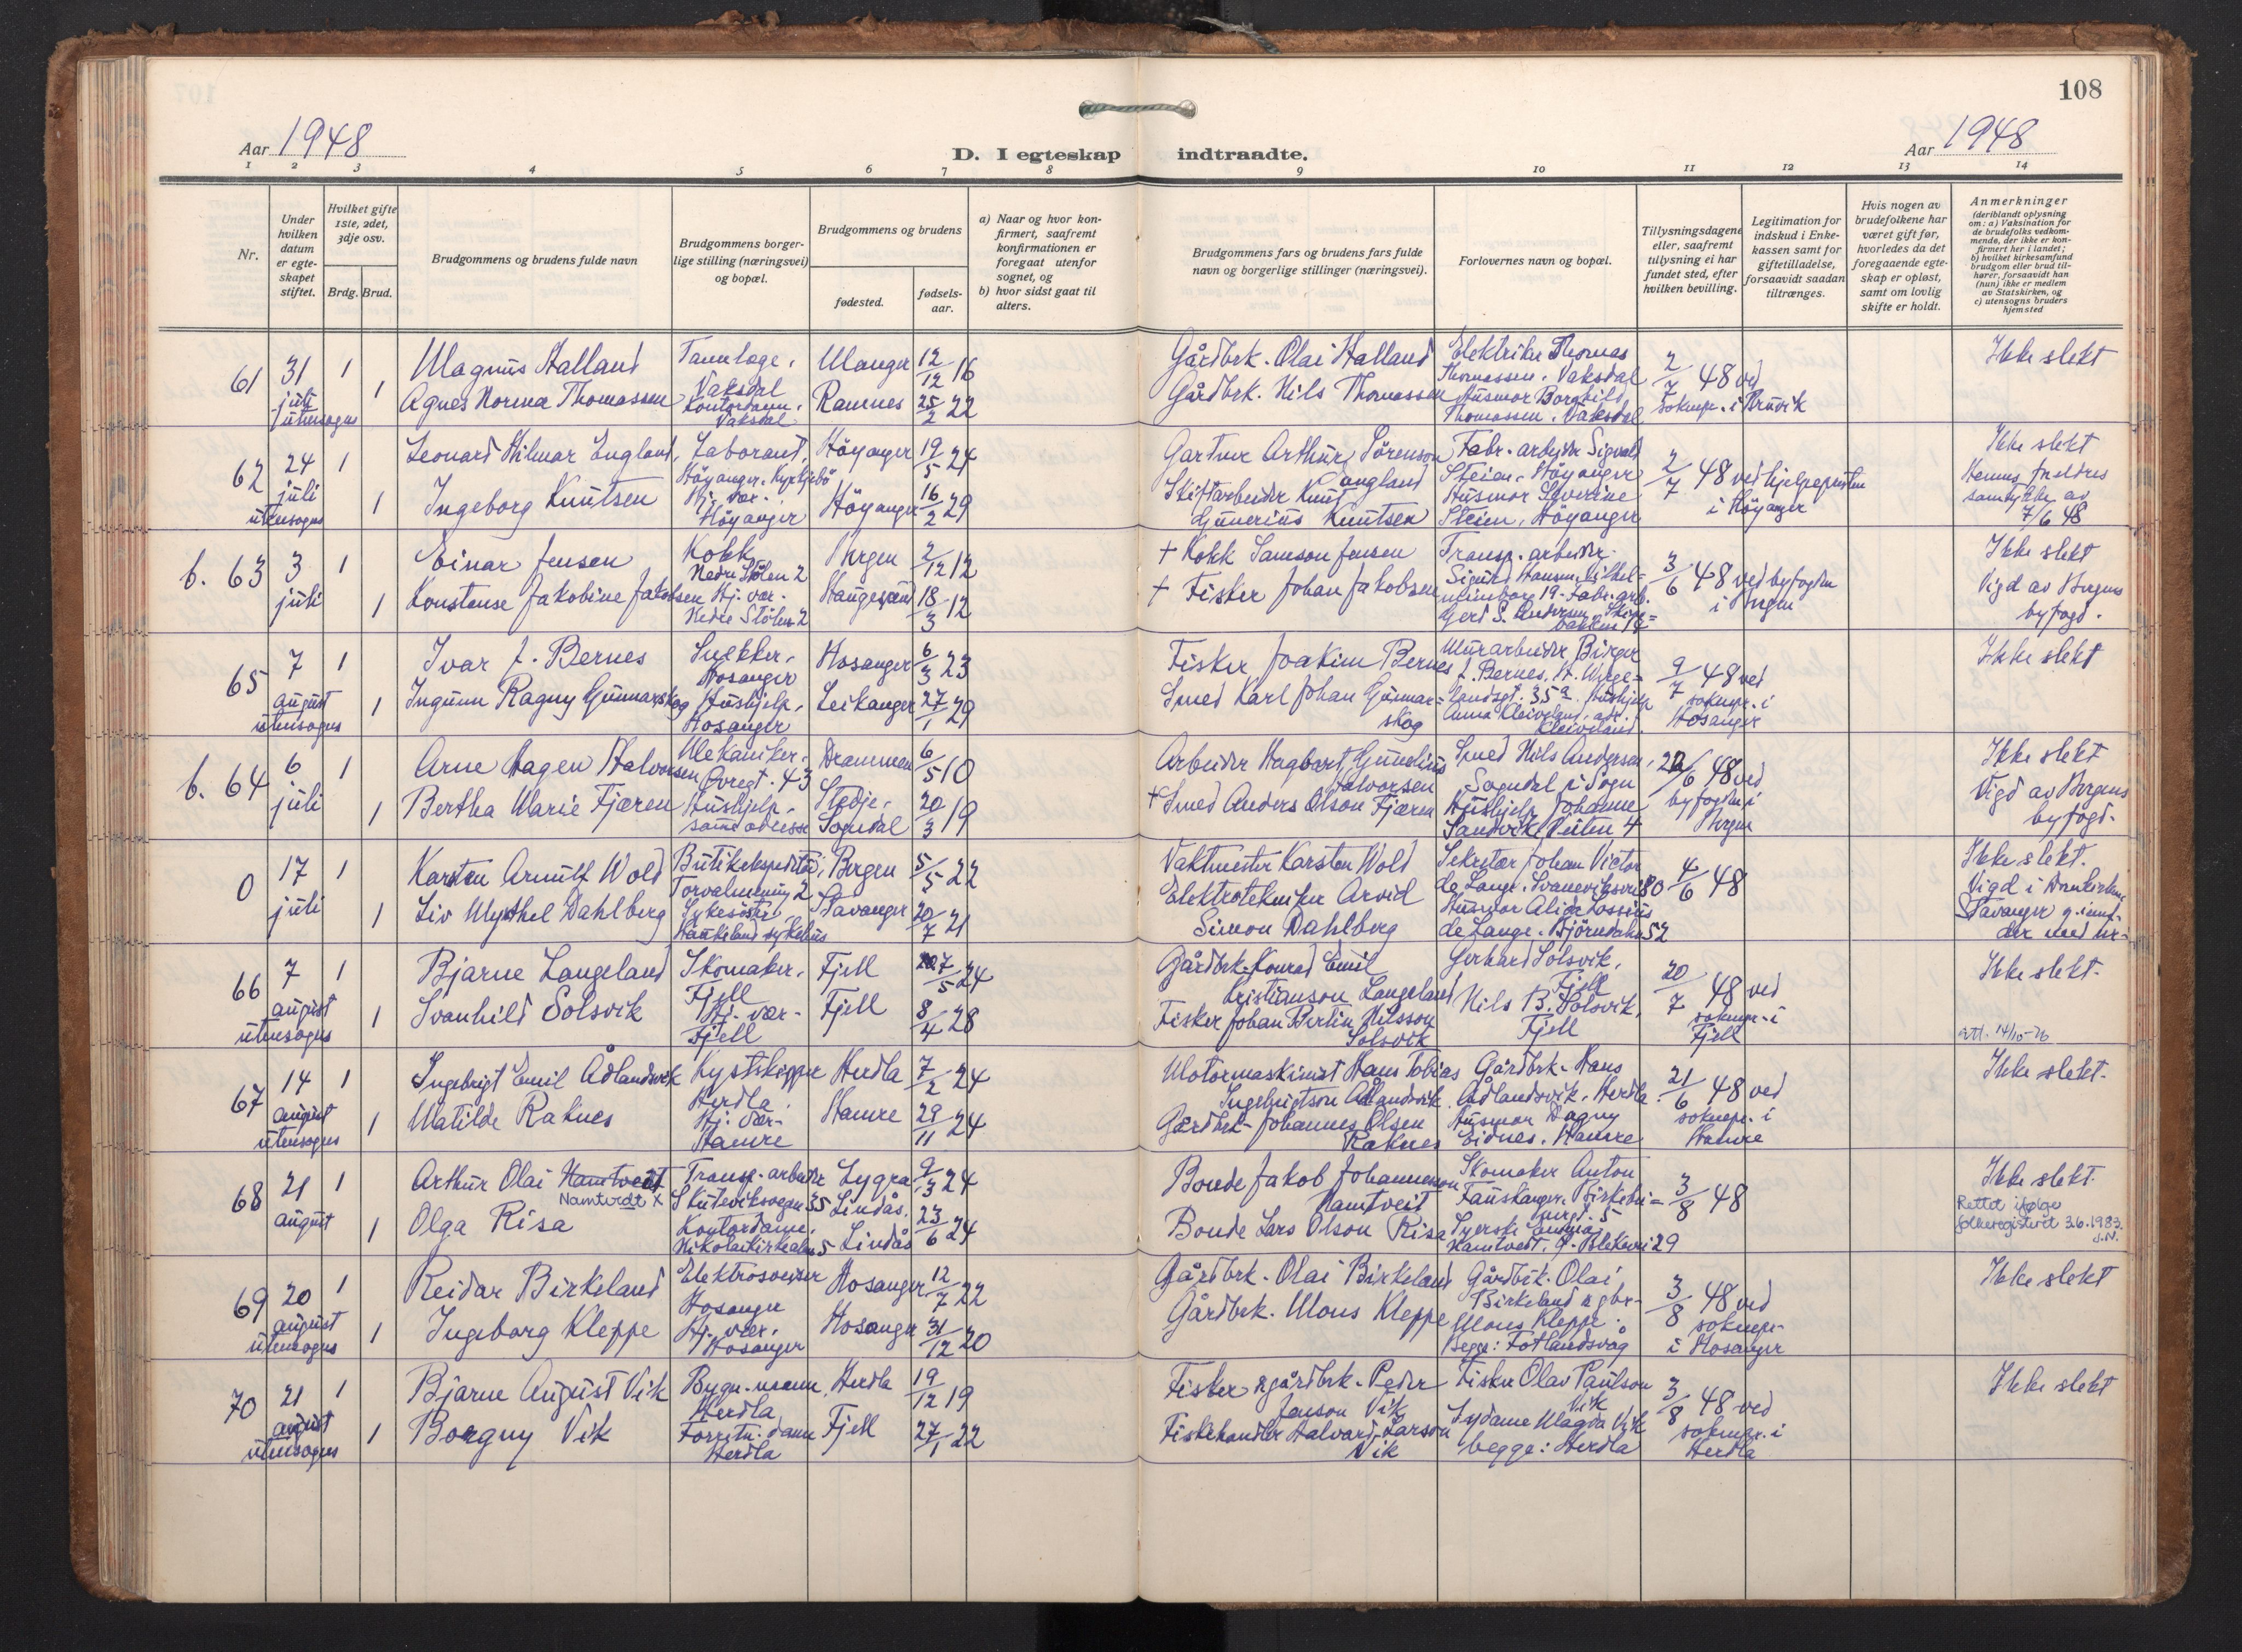 108
Aar 1948
D. I egteskap indtraadte.
Aar 1948
1 2 3 4 5 6 7 8 9 10 11 12 13 14
Nr.
Under hvilken datum er egteskapet stiftet.
Hvilket gifte 1ste, 2det, 3dje osv.
Brdg. Brud.
Brudgommens og brudens fulde navn
Brudgommens borgerlige stilling (næringsvei) og bopæl.
Brudgommens og brudens
fødested.
fødselsaar.
a) Naar og hvor konfirmert, saafremt konfirmationen er foregaat utenfor sognet, og
b) hvor sidst gaat til alters.
Brudgommens fars og brudens fars fulde navn og borgerlige stillinger (næringsvei).
Forlovernes navn og bopæl.
Tillysningsdagene eller, saafremt tullysning ei har fundet sted, efter hvilken bevilling.
Legitimation for indskud i Enkekassen samt for giftetilladelse, forsaavidt saadan tiltrænges.
Hvis nogen av brudefolkene har været gift før, hvorledes da det foregaaende egteskap er opløst, samt om lovlig skifte er holdt.
Anmerkninger
(deriblandt oplysning om: a) Vaksination for de brudefolks vedkommende, der ikke er konfirmert her i landet; b) hvilket kirkesamfund brudgom eller brud tilhører, forsaavidt han (hun) ikke er medlem av Statskirken, og c) utensogns bruders hjemsted
61 31 juli utensogns 1 Magnus Halland Tannlæge, Vaksdal Manger 12/12 16 Gårdbrk. Olai Halland Elektriker Thomas Thomassen, Vaksdal 2/7 48 ved soknepr. i Bruvik Ikke slekt
1 Agnes Norma Thomassen Kontordame, Vaksdal Ramnes 25/2 22 Gårdbrk. Nils Thomassen Husmor Borghild Thomassen, Vaksdal
62 24 juli utensogns 1 Leonard Hilmar England, Laborant, Höyanger, Kyrkjebö Höyanger 19/5 24 Gartner Arthur Sörenson England Fabr. arbeider Sigvald Steien, Höyanger 2/7 48 ved hjelpepresten i Höyanger Ikke slekt
1 Ingeborg Knutsen Hj. vær. Höyanger Höyanger 16/2 29 Skiftarbeider Knut Gunerius Knutsen Husmor Severine Steien, Höyanger Hennes foreldres samtykke av 7/6 48
b. 63 3 juli 1 Einar Jensen Kokk Nedre Stölen 2 Bergen 2/12 12 + Kokk Samson Jensen Transp. arbeider Sigurd Hansen, 3/6 48 ved byfogden i Bergen Ikke slekt
1 Konstanse Jakobine Jakobsen Hj. vær. Nedre Stölen 2 Haugesund 18/3 12 + Fisker Johan Jakobsen Fabr. arb. Gerd S. Andersen, Vigd av Bergens byfogd.
65 7 august utensogns 1 Ivar J. Bernes Snekker, Hosanger Hosanger 6/3 23 Fisker Joakim Bernes Murarbeider Birger J. Bernes, 9/7 48 ved soknepr. i Hosanger Ikke slekt
1 Ingunn Ragny Gunnarskog Hushjelp, Hosanger Leikanger 27/1 29 Smed Karl Johan Gunnarskog Hushjelp Anna Kleiveland, adr. Kleiveland.
b. 64 6 juli 1 Arne Hagen Halvorsen Mekaniker, Øvregt. 43 Drammen 6/5 10 Arbeider Hagbart Gunelius Halvorsen Smed Nils Andersen, Sogndal i Sogn 22/6 48 ved byfogden i Bergen Ikke slekt
1 Bertha Marie Fjæren Hushjelp, samme adresse Stedje, Sogndal 20/3 19 + Smed Anders Olson Fjæren Hushjelp Johanne Sandvik, Veiten 4 Vigd av Bergens byfogd.
0 17 juli 1 Karsten Arnulf Wold Butikekspeditör, Torvalmenning 2 Bergen 5/5 22 Vaktmester Karsten Wold Sekretær Johan Victor de Lange, Svaneviksvei 80 4/6 48 Ikke slekt.
1 Liv Myrthel Dahlberg Sykesöster, Haukeland sykehus Stavanger 20/7 21 Elektrotekniker Arvid Simon Dahlberg Husmor Alida Lossius de Lange, Björndalen 52 Vigd i Domkirken Stavanger
66 7 august utensogns 1 Bjarne Langeland Skomaker, Fjell Fjell 7/5 24 Gårdbrk. Konrad Emil Kristianson Langeland Gerhard Solsvik, Fjell 20/7 48 ved soknepr. i Fjell Ikke slekt.
1 Svanhild Solsvik Hj. vær. Fjell Fjell 8/4 28 Fisker Johan Bertin Nilsson Solsvik Nils B. Solsvik, Fjell att. 14/10-76
67 14 august utensogns 1 Ingebrigt Emil Ådlandsvik Kystskipper Herdla Herdla 7/2 24 Motormaskinist Hans Tobias Ingebrigtson Ådlandsvik Gårdbrk. Hans Ådlandsvik, Herdla 21/6 48 ved soknepr. i Hamre Ikke slekt.
1 Matilde Raknes Hj. vær. Hamre Hamre 29/11 24 Gårdbrk. Johannes Olsen Raknes Husmor Dagny Eidnes, Hamre
68 21 august 1 Arthur Olai Namtveit Namtvedt x Transp. arbeider Skuteviksvegen 35 Lygra Lindås 9/3 24 Bonde Jakob Johannesson Namtveit Skomaker Anton Fauskanger, 3/8 48 Ikke slekt.
1 Olga Risa Kontordame, Nikolaikirkealm. 5 Lindås 23/6 24 Bonde Lars Olson Risa Syerske Namtvedt, 29 Rettet ifølge folkeregisteret 3.6.1983.
69 20 august utensogns 1 Reidar Birkeland Elektrosveiser Hosanger Hosanger 12/7 22 Gårdbrk. Olai Birkeland Gårdbrk. Olai Birkeland 3/8 48 ved soknepr. i Hosanger Ikke slekt
1 Ingeborg Kleppe Hj. vær. Hosanger Hosanger 31/12 20 Gårdbrk. Mons Kleppe Mons Kleppe. Begge: Fotlandsvåg
70 21 august utensogns 1 Bjarne August Vik Bygn. mann, Herdla Herdla 19/12 19 Fisker & gårdbrk. Peder Jenson Vik Fisker Olav Paulson Vik 3/8 48 ved soknepr. i Herdla Ikke slekt
1 Borgny Vik Forretn. dame Herdla Fjell 27/1 22 Fiskehandler Halvard Larson Vik Sydame Magda Vik begge: Herdla